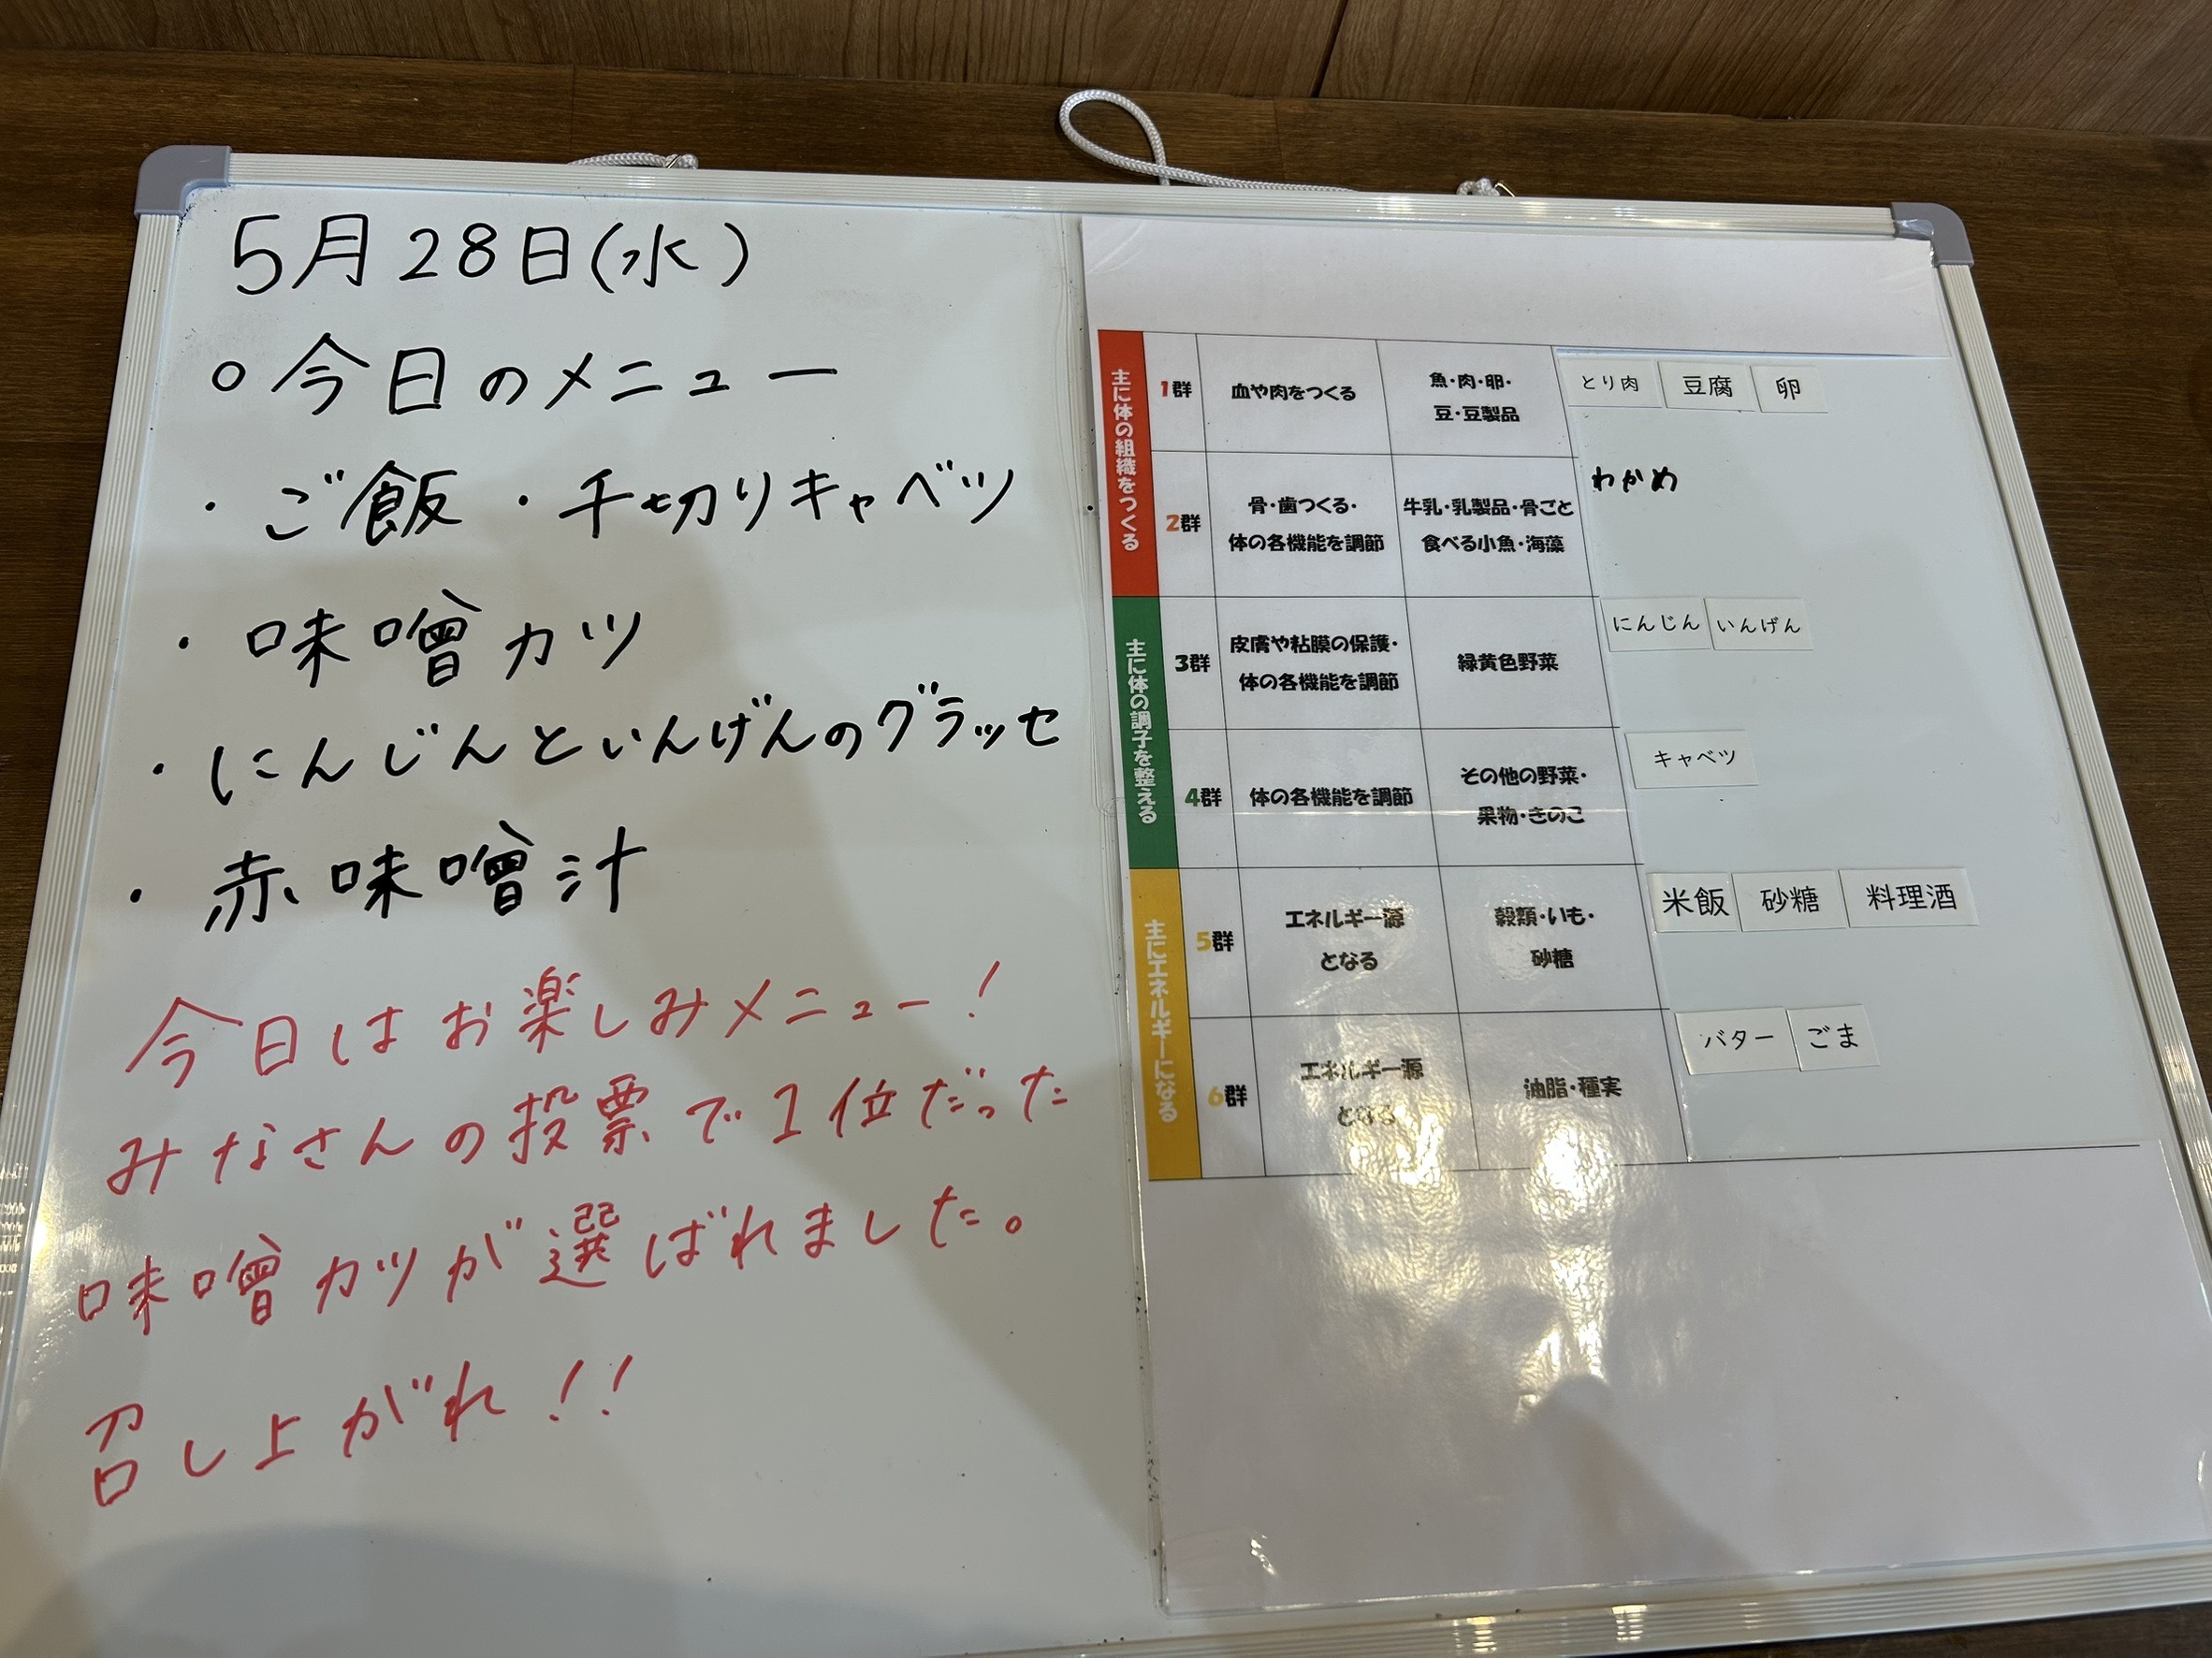 5月28日(水)
○今日のメニュー
・ご飯・千切りキャベツ
・味噌カツ
・にんじんといんげんのグラッセ
・赤味噌汁
今日はお楽しみメニュー!
みなさんの投票で1位だった
味噌カツが選ばれました。
召し上がれ!!
主に体の組織をつくる
1群 血や肉をつくる 魚・肉・卵・
豆・豆製品
とり肉 豆腐 卵
2群 骨・歯つくる・
体の各機能を調節
牛乳・乳製品・骨ごと
食べる小魚・海藻
わかめ
主に体の調子を整える
3群 皮膚や粘膜の保護・
体の各機能を調節
緑黄色野菜
にんじん いんげん
4群 体の各機能を調節 その他の野菜・
果物・きのこ
キャベツ
主にエネルギーになる
5群 エネルギー源
となる
穀類・いも・
砂糖
米飯 砂糖 料理酒
6群 エネルギー源
となる
油脂・種実
バター ごま